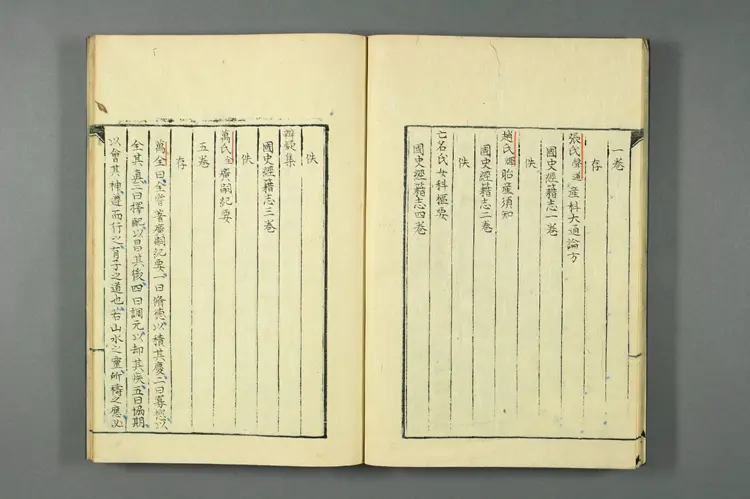 一卷
存
張氏聲道產科大通論方
國史經籍志一卷
佚
趙氏輝胎產須知
國史經籍志二卷
佚
亡名氏女科樞要
國史經籍志四卷
佚
辨疑集
國史經籍志三卷
佚
萬氏全廣嗣紀要
五卷
存
萬全曰全嘗著廣嗣紀要一曰脩德以積其慶二曰寡慾以
全其真三曰擇配以昌其後四曰調元以却其疾五曰協期
以會其神遵而行之有子之道也若山水之靈所禱之應必